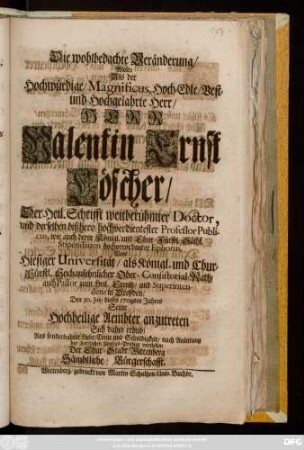 Die wohlbedachte Veränderung/
Als der
Hochwürdige/ Magnificus, Hoch-Edle/ Vest-
und Hochgelahrte Herr/
HERR
Valentin Ernst
Löscher/
Der Heil. Schrifft weitberühmter Doctor,
und derselben bißhero hochverdientester Professor Publi-
cus, wie auch derer Königl. und Chur-Fürstl. Sächs.
Stipendiaten hochverordneter Ephorus,
Von
Hiesiger Universität/ als Königl. und Chur-
Fürstl. Hochansehnlicher Ober-Consistorial-Rath/
auch Pastor zum Heil. Creutz/ und Superinten-
dens in Dreßden/
Den 20. Jul. dieses 1709ten Jahres
Seine
Hochheilige Aembter anzutreten
Sich dahin erhub/
Aus sonderbahrer Liebe/ Treu und Schuldigkeit/ nach Anleitung
der
Der Chur-Stadt Wittenberg
Sämbtliche Bürgerschafft.
Wittenberg/ gedruckt von Martin Schultzen/ Univ. Buchdr.